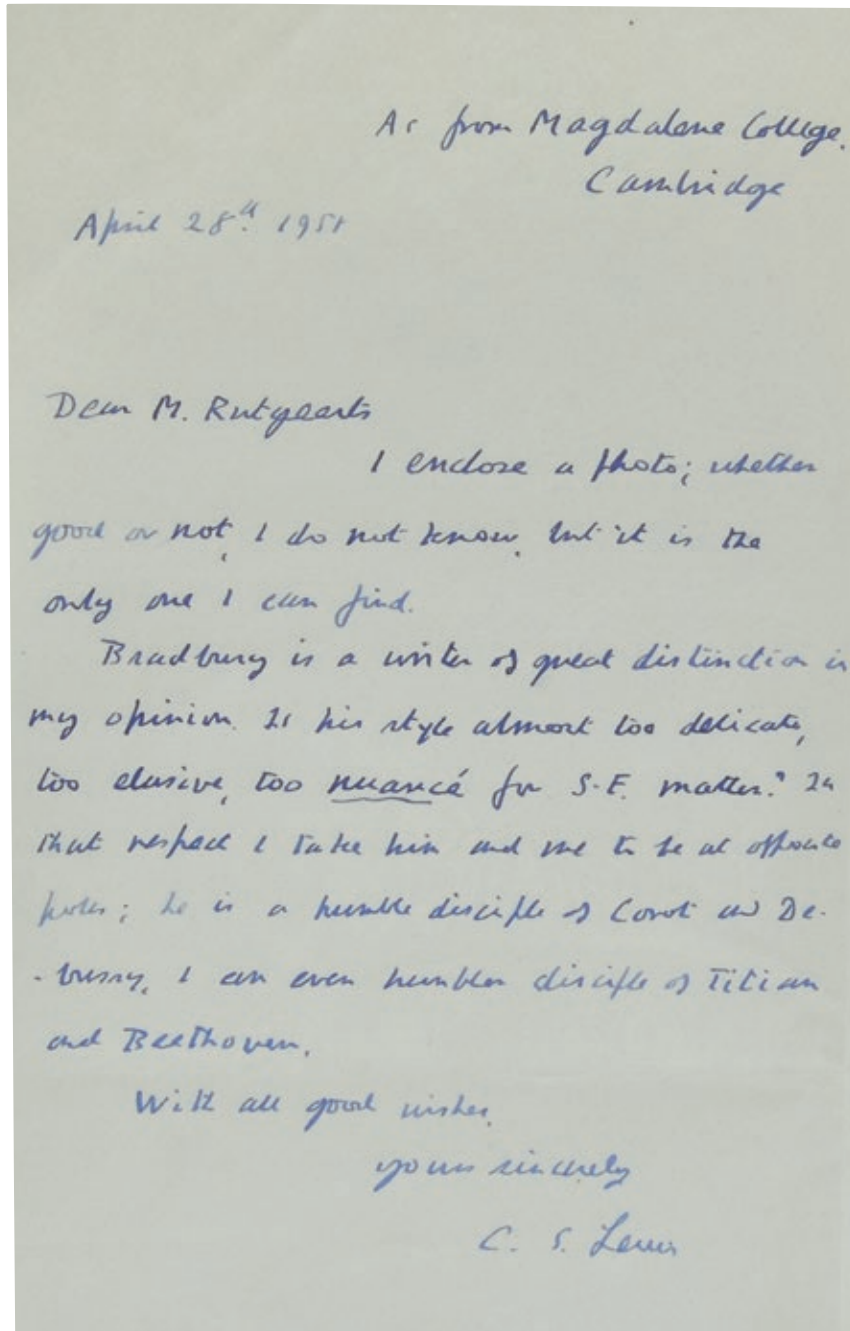 As from Magdalene College.
Cambridge
April 28th 1951
Dear M. Rutgeerts
I enclose a photo; whether
good or not, I do not know, but it is the
only one I can find.
Bradbury is a writer of great distinction in
my opinion. Is his style almost too delicate,
too elusive, too nuancé for S.F. matter? In
that respect I take him and me to be at opposite
poles; he is a humble disciple of Corot and De-
-bussy, I an even humbler disciple of Titian
and Beethoven.
With all good wishes,
yours sincerely
C. S. Lewis